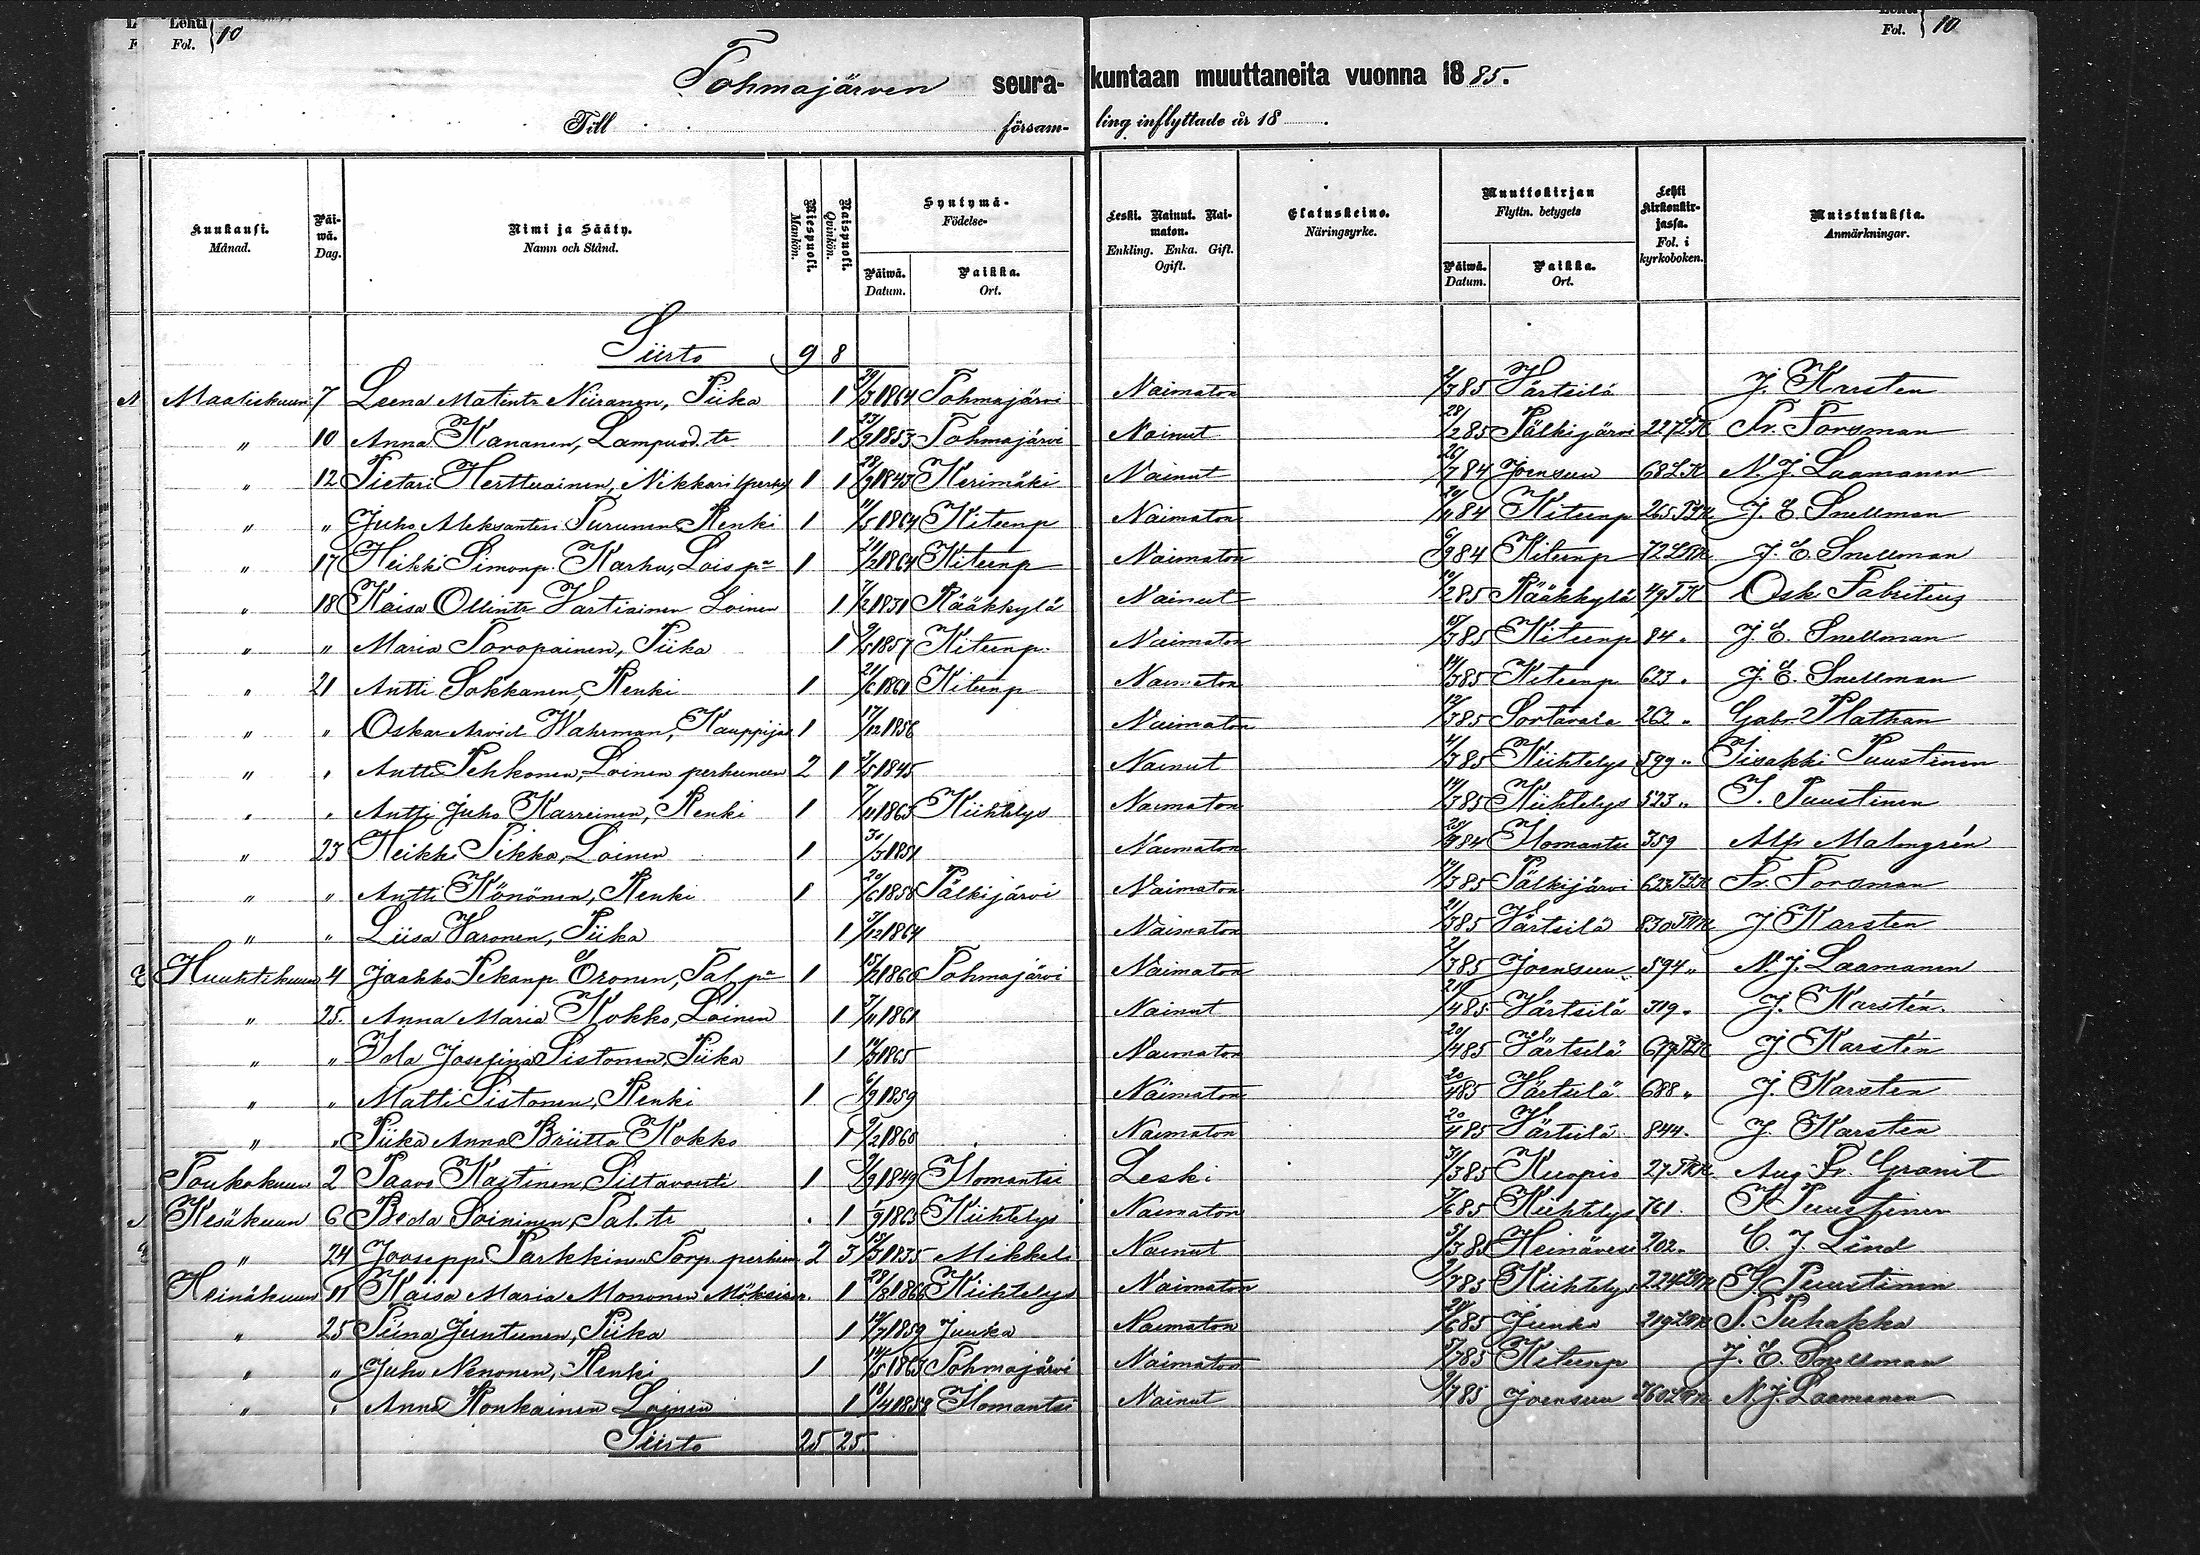 Lehti Fol. 10 Fol. 10
Tohmajärven seurakuntaan muuttaneita vuonna 1885.
Till församling inflyttade år 18
Kuukausi. Månad. Päiwä. Dag. Nimi ja Sääty. Namn och Stånd. Miespuoli. Mankön. Naispuoli. Qvinkön. Syntymä- Födelse- Päiwä. Datum. Paikka. Ort. Leski. Nainut. Naimaton. Enkling. Enka. Gift. Ogift. Elatuskeino. Näringsyrke. Muuttokirjan Flyttn. betygets Päiwä. Datum. Paikka. Ort. Lehti Kirkonkirjassa. Fol. i kyrkoboken. Muistutuksia. Anmärkningar.
Siirto 9 8
Maaliskuun 7 Leena Matintr Niiranen, Piika 1 29/3 1864 Tohmajärvi Naimaton 2/3 85 Värtsilä J. Karsten
" 10 Anna Kananen, Lampuod. tr 1 23/2 1853 Tohmajärvi Nainut 28/2 85 Pälkijärvi 227 LK Fr. Forsman
" 12 Pietari Herttuainen, Nikkari 1 1 28/9 1843 Kerimäki Nainut 26/7 84 Joensuu 68 LK N. J. Laamanen
" " Juho Aleksanteri Purunen, Renki 1 11/5 1864 Kiteenp Naimaton 20/11 84 Kiteenp 265 J. E. Snellman
" 17 Heikki Simonp. Karhu, Lois pa 1 21/2 1864 Kiteenp Naimaton 6/9 84 Kiteenp 72 J. E. Snellman
" 18 Kaisa Ollintr Vartiainen Loinen 1 7/2 1831 Rääkkylä Nainut 10/2 85 Rääkkylä 49 Osk Fabritius
" " Maria Toropainen, Piika 1 9/5 1857 Kiteenp. Naimaton 15/3 85 Kiteenp 84 " J. E. Snellman
" 21 Antti Sokkanen, Renki 1 21/6 1861 Kiteenp Naimaton 14/3 85 Kiteenp 623 " J. E. Snellman
" " Oskar Arvid Wahrman, Kauppias 1 17/12 1856 Naimaton 12/3 85 Sortavala 262 " Gabr. Plathan
" " Antti Pehkonen, Loinen perheineen 2 1 7/5 1845 Nainut 4/3 85 Kiihtelys 599 " Iisakki Puustinen
" " Antti Juho Karreinen, Renki 1 7/11 1865 Kiihtelys Naimaton 14/3 85 Kiihtelys 523 " I. Puustinen
" 23 Heikki Pikko, Loinen 1 30/3 1851 Naimaton 25/9 84 Ilomantsi 359 Alfr Malmgrén
" " Antti Könönen, Renki 1 20/6 1858 Pälkijärvi Naimaton 14/3 85 Pälkijärvi 623 Fr. Forsman
" " Liisa Varonen, Piika 1 3/12 1864 Naimaton 21/3 85 Värtsilä 830 J Karsten
Huuhtikuun 4 Jaakko Pekanp. Eronen, Pal pa 1 15/2 1860 Tohmajärvi Naimaton 2/3 85 Joensuu 594 " N. J. Laamanen
" 25. Anna Maria Kokko, Loinen 1 3/11 1861 Nainut 21/4 85 Värtsilä 319 " J. Karstén.
" " Ida Josefina Sistonen, Piika 1 14/3 1865 Naimaton 20/4 85 Värtsilä 679 J Karstén
" " Matti Sistonen, Renki 1 6/9 1859 Naimaton 20/4 85 Värtsilä 688 " J. Karsten
" " Piika Anna Briitta Kokko 1 9/2 1860 Naimaton 20/4 85 Värtsilä 844 " J. Karsten
Toukokuun 2 Paavo Kaitinen, Siltavouti 1 3/9 1849 Ilomantsi Leski 31/3 85 Kuopio 27 Aug. Fr. Granit
Kesäkuun 6 Beda Soininen, Pal. tr 1 5/9 1863 Kiihtelys Naimaton 7/6 85 Kiihtelys 161 I. Puustinen
" 24 Joosepp Parkkinen Torp. perhein. 2 3 13/3 1835 Mikkeli Nainut 5/3 85 Heinävesi 202 " C. J. Lind
Heinäkuun 11 Kaisa Maria Mononen Mökläinen 1 29/8 1866 Kiihtelys Naimaton 2/7 85 Kiihtelys 224 I. Puustinen
" 25 Piina Juntunen, Piika 1 14/7 1859 Juuka Naimaton 24/6 85 Juuka 219 P. Puhakka
" " Juho Nenonen, Renki 1 14/5 1863 Tohmajärvi Naimaton 5/7 85 Kiteenp J. E. Snellman
" " Anna Ronkainen Loinen 1 18/4 1858 Ilomantsi Nainut 9/7 85 Joensuu 260 N. J. Laamanen
Siirto 25 25